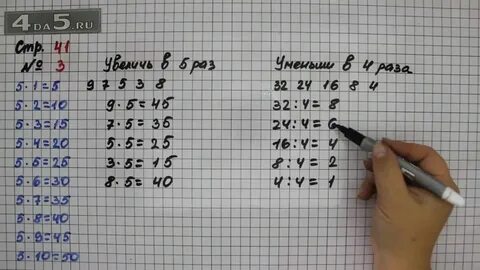 4DA5.RU
Стр. 41
№ 3
5·1=5
5·2=10
5·3=15
5·4=20
5·5=25
5·6=30
5·7=35
5·8=40
5·9=45
5·10=50
Увеличь в 5 раз
9 7 5 3 8
9·5=45
7·5=35
5·5=25
3·5=15
8·5=40
Уменьши в 4 раза
32 24 16 8 4
32:4=8
24:4=6
16:4=4
8:4=2
4:4=1